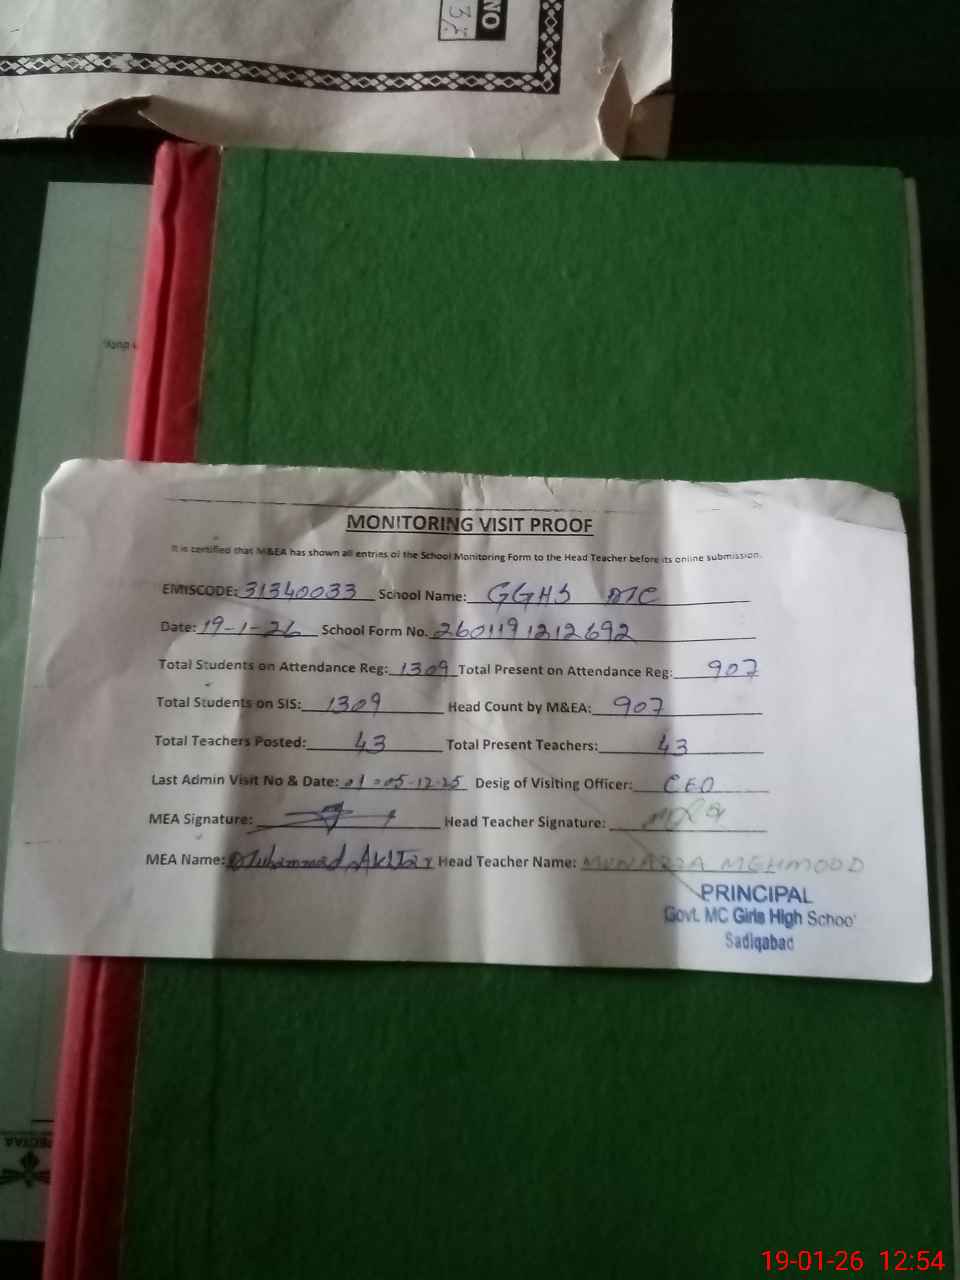 NO
MONITORING VISIT PROOF
It is certified that M&EA has shown all entries of the School Monitoring Form to the Head Teacher before its online submission.
EMISCODE: 31340033 School Name: GGHS MC
Date: 19-1-26 School Form No. 2601191212692
Total Students on Attendance Reg: 1309 Total Present on Attendance Reg: 907
Total Students on SIS: 1309 Head Count by M&EA: 907
Total Teachers Posted: 43 Total Present Teachers: 43
Last Admin Visit No & Date: 01 = 05-12-25 Desig of Visiting Officer: CEO
MEA Signature: Head Teacher Signature:
MEA Name: Muhammad Akhtar Head Teacher Name: MUNAZZA MEHMOOD
PRINCIPAL
Govt. MC Girls High School
Sadiqabad
19-01-26 12:54